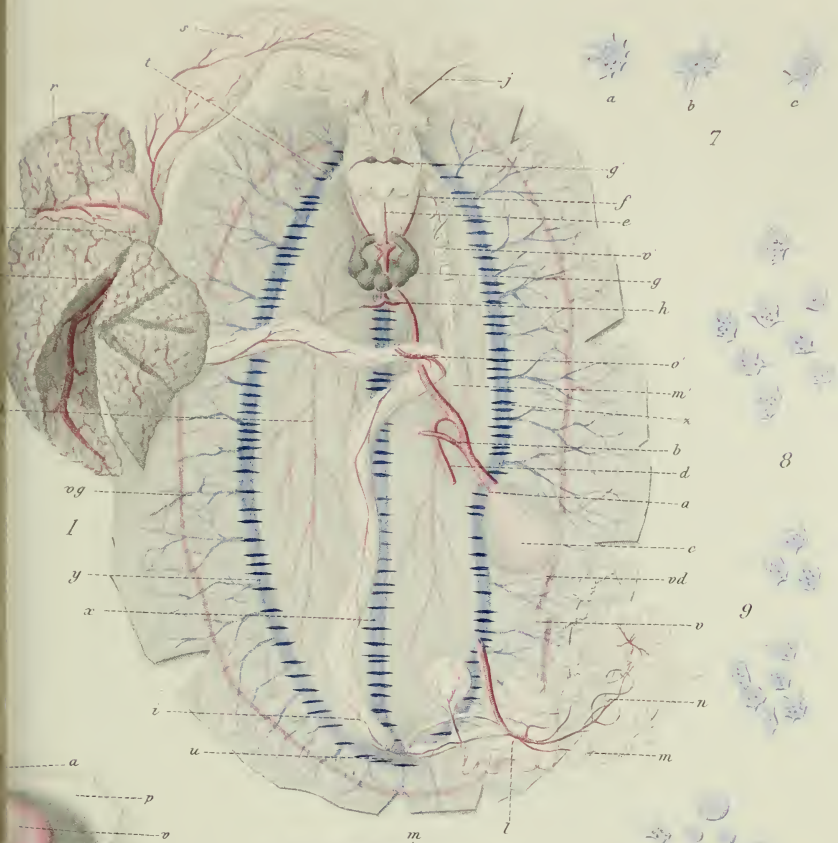 s
t
j
r
a b c
7
g'
f
e
v'
g
h
o'
m'
x
b
8
d
vg
a
1
c
y
vd
x
9
v
n
i
u
m
a
p
l
v
m